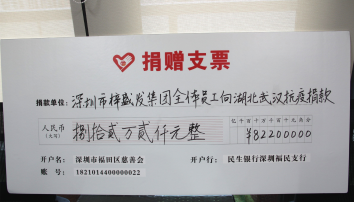 捐赠支票
捐款单位：深圳市梓盛发集团全体员工向湖北武汉抗疫捐款
人民币（大写） 捌拾贰万贰仟元整 亿千百十万千百十元角分
¥82200000
开户名：深圳市福田区慈善会 开户行：民生银行深圳福民支行
账 号：1821014400000022